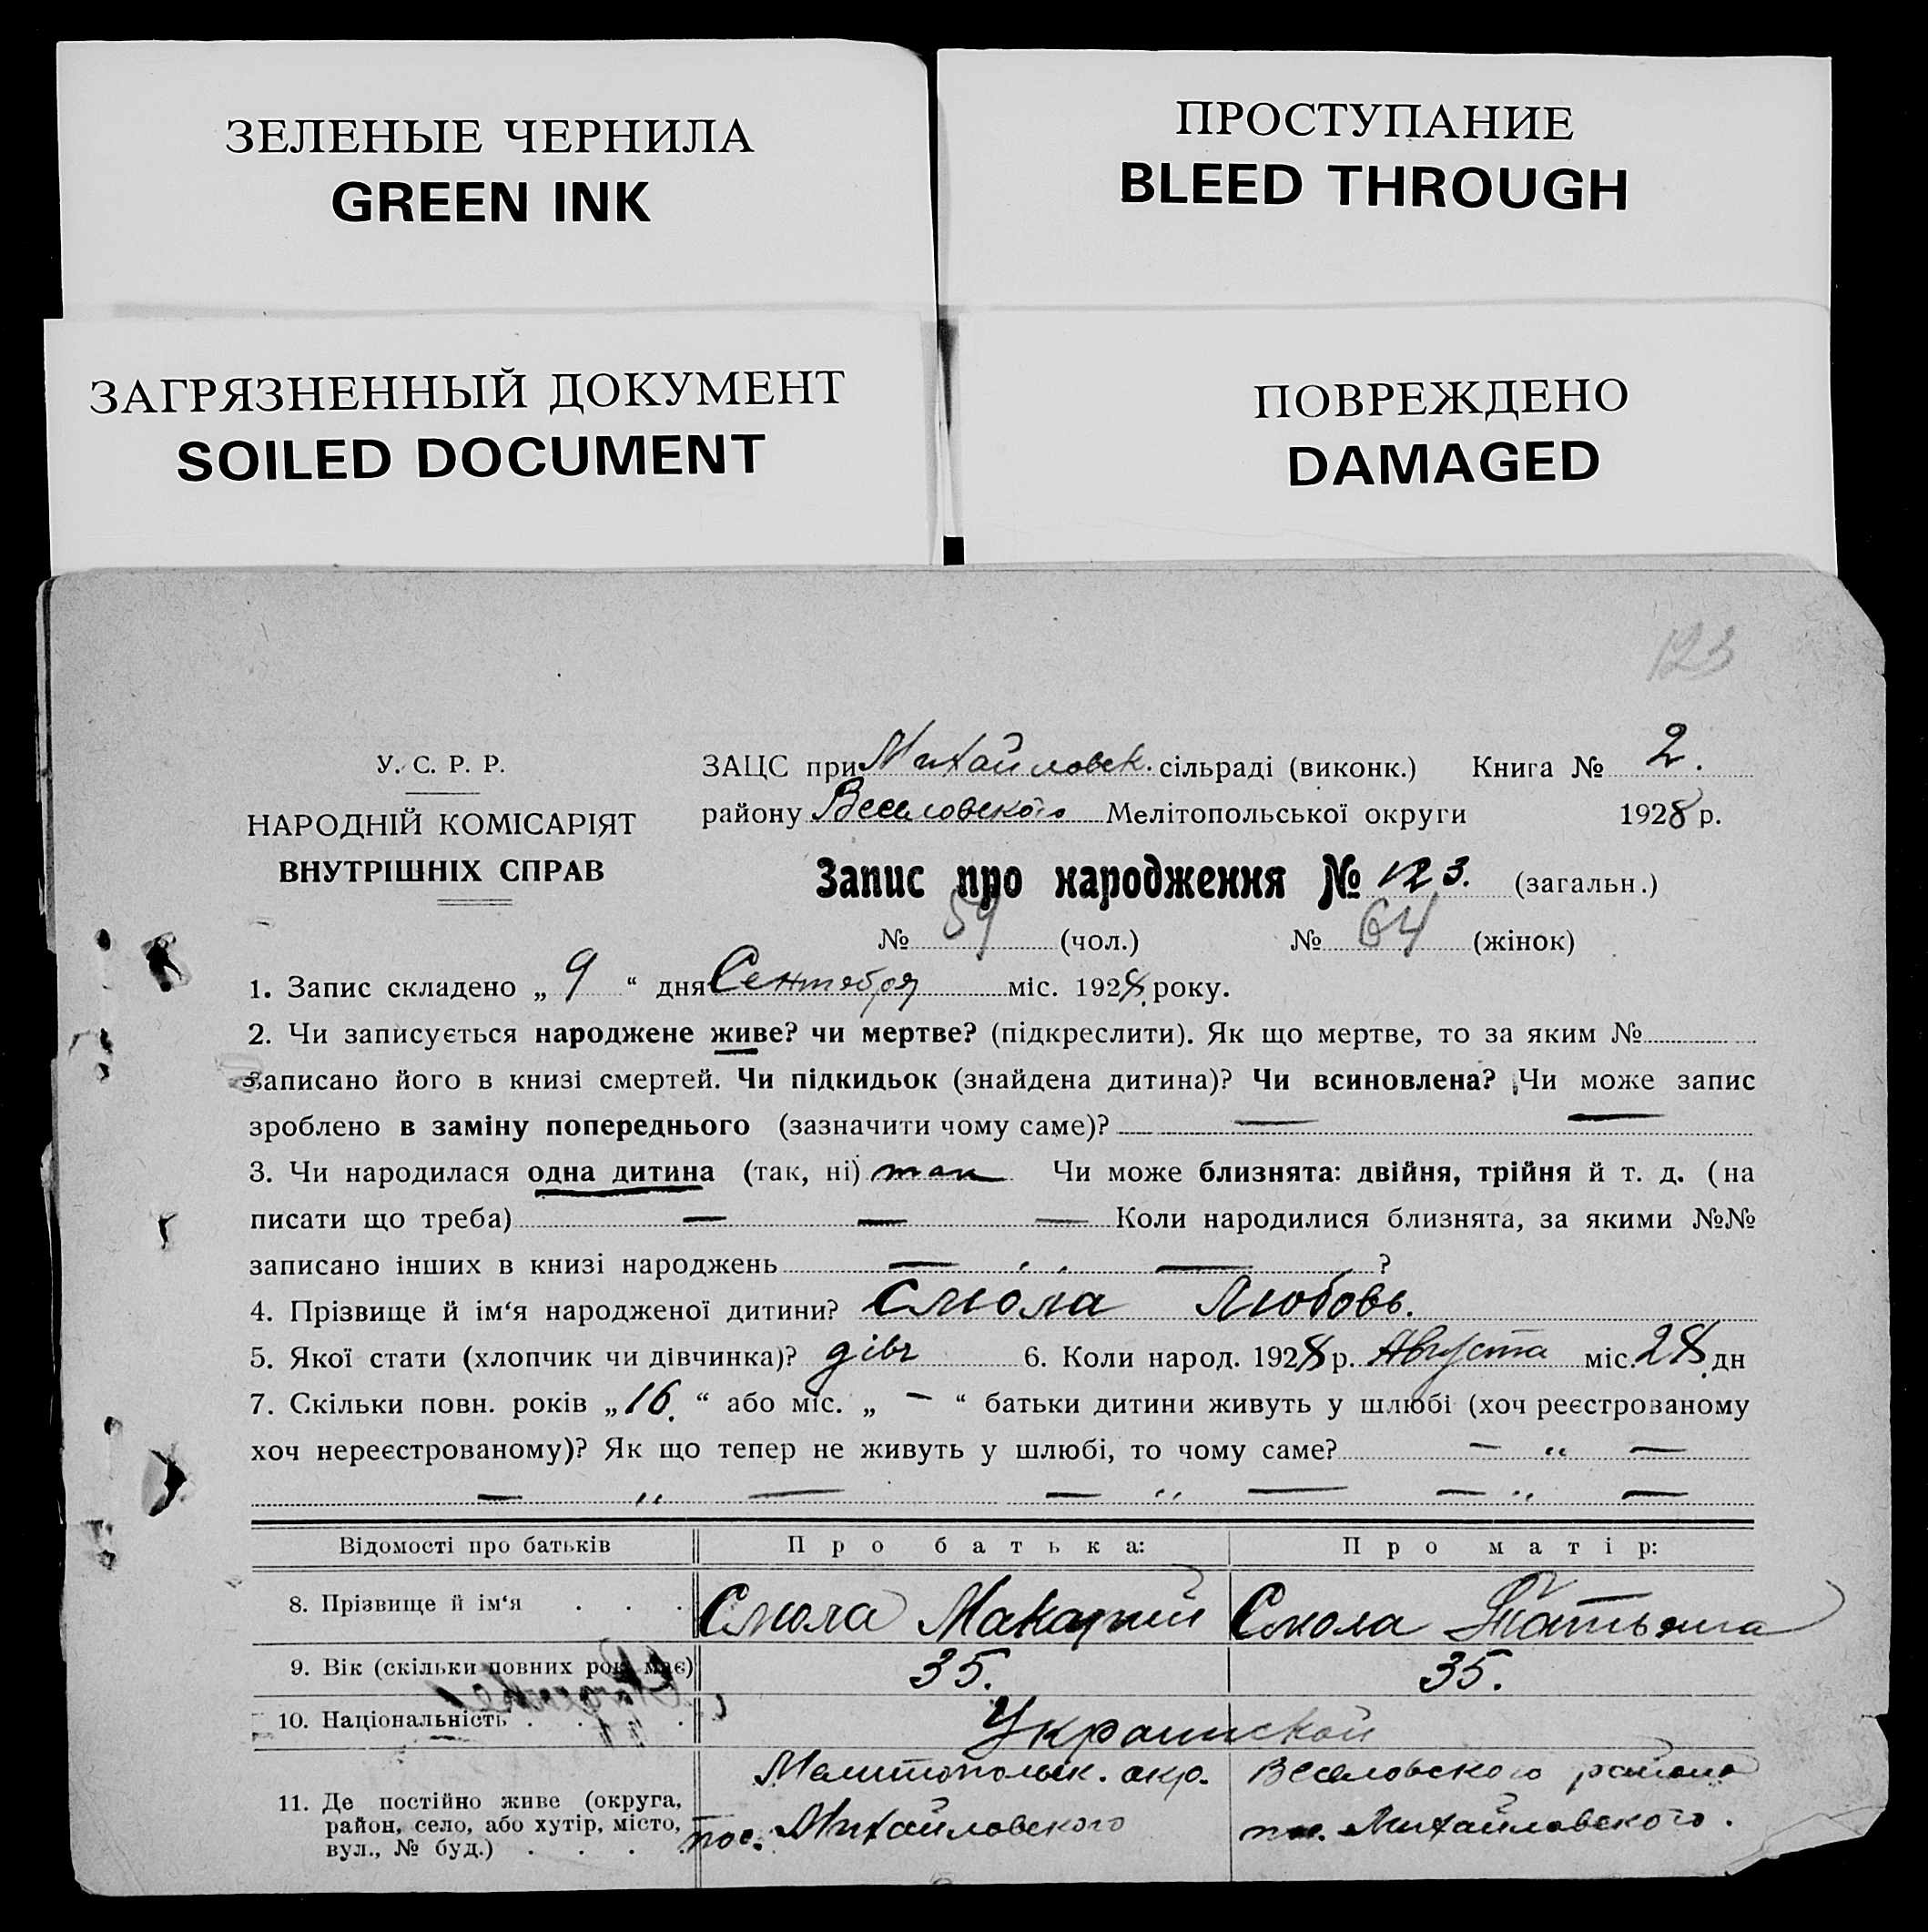 ЗЕЛЕНЫЕ ЧЕРНИЛА
GREEN INK
ПРОСТУПАНИЕ
BLEED THROUGH
ЗАГРЯЗНЕННЫЙ ДОКУМЕНТ
SOILED DOCUMENT
ПОВРЕЖДЕНО
DAMAGED
123
У. С. Р. Р.
НАРОДНІЙ КОМІСАРІЯТ
ВНУТРІШНІХ СПРАВ
ЗАЦС при Михайловск. сільраді (виконк.) Книга № 2.
району Веселовского Мелітопольської округи 1928 р.
Запис про народження № 123. (загальн.)
№ 59 (чол.) № 64 (жінок)
1. Запис складено „ 9 “ дня Сентября міс. 1928 року.
2. Чи записується народжене живе? чи мертве? (підкреслити). Як що мертве, то за яким №
записано його в книзі смертей. Чи підкидьок (знайдена дитина)? Чи всиновлена? Чи може запис
зроблено в заміну попереднього (зазначити чому саме)? — —
3. Чи народилася одна дитина (так, ні) так Чи може близнята: двійня, трійня й т. д. (на
писати що треба) — — — Коли народилися близнята, за якими №№
записано інших в книзі народжень — „ — ?
4. Прізвище й ім‘я народженої дитини? Смола Любовь.
5. Якої стати (хлопчик чи дівчинка)? дівч 6. Коли народ. 1928 р. Августа міс. 28 дн
7. Скільки повн. років „ 16. “ або міс. „ — “ батьки дитини живуть у шлюбі (хоч реєстрованому
хоч нереєстрованому)? Як що тепер не живуть у шлюбі, то чому саме? — „ —
— „ — — „ — — „ —
Відомості про батьків Про батька: Про матір:
8. Прізвище й ім‘я . . . Смола Макарий Смола Татьяна
9. Вік (скільки повних рок. має) 35. 35.
10. Національність . . . . Украинской
11. Де постійно живе (округа,
район, село, або хутір, місто,
вул., № буд.) . . . .
Мелитопольск. окр. Веселовского района
пос. Михайловского пос. Михайловского.